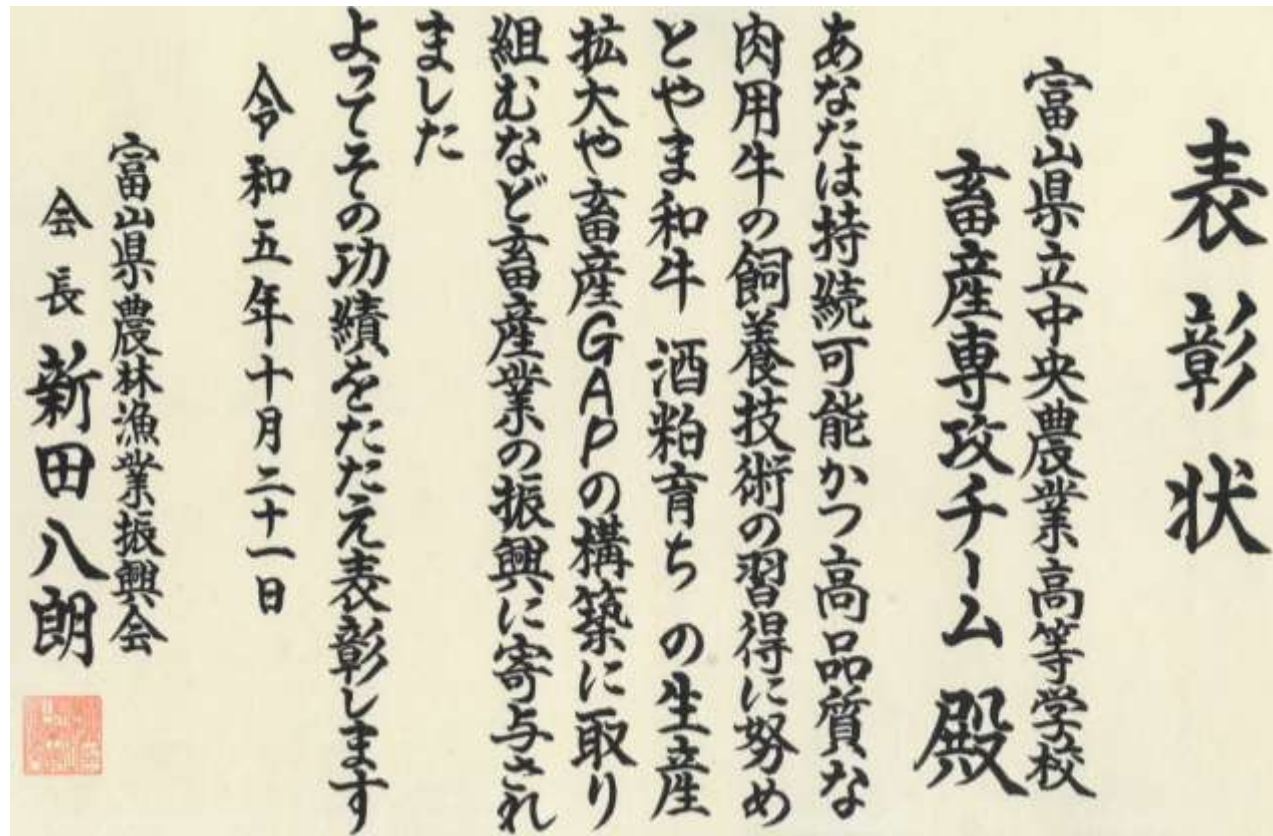 表彰状
富山県立中央農業高等学校
畜産専攻チーム 殿
あなたは持続可能かつ高品質な
肉用牛の飼養技術の習得に努め
とやま和牛 酒粕育ち の生産
拡大や畜産GAPの構築に取り
組むなど畜産業の振興に寄与され
ました
よってその功績をたたえ表彰します
令和五年十月二十一日
富山県農林漁業振興会
会長 新田八朗